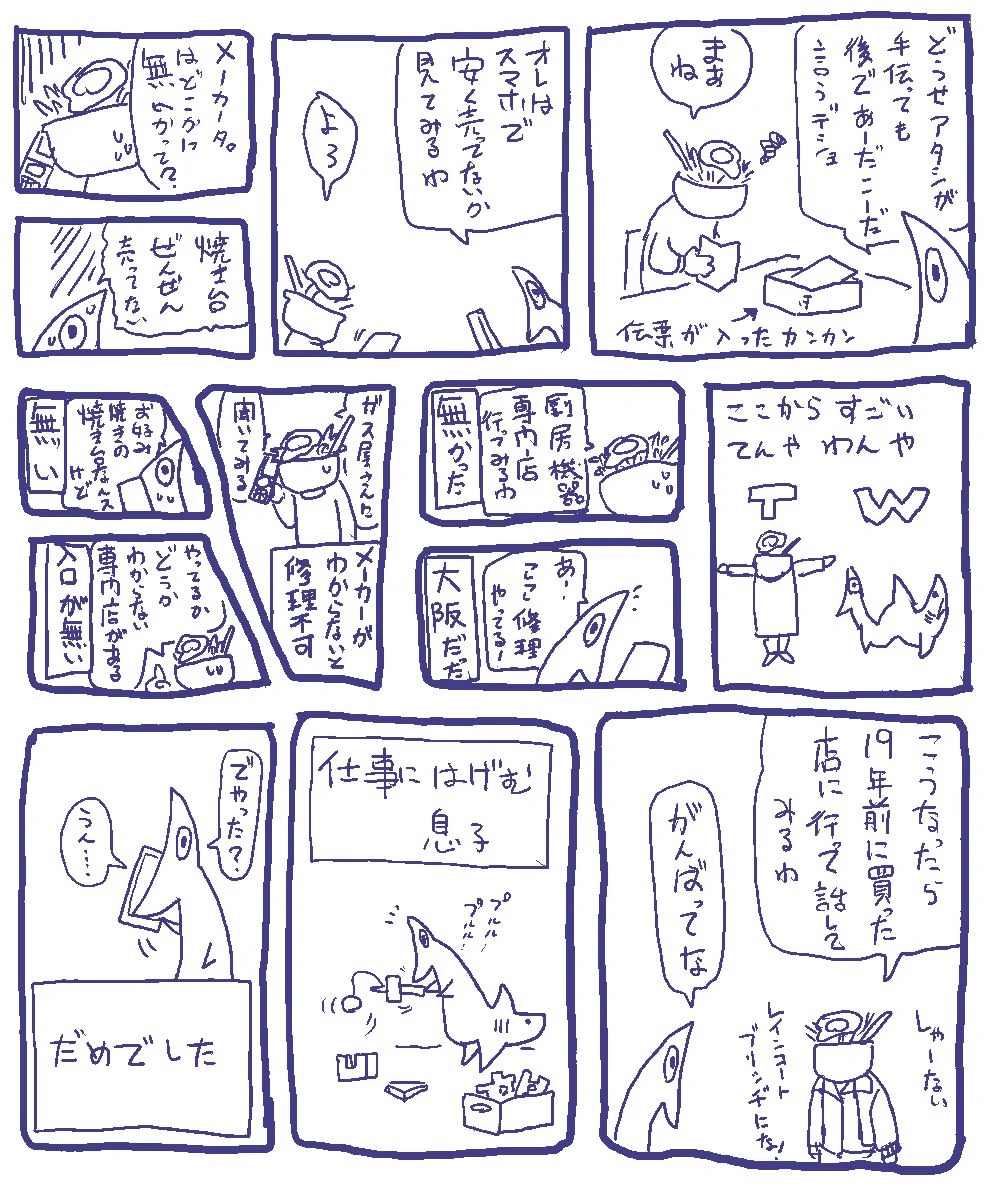 どうせアタシが
手伝っても
後であーだこーだ
言うデショ
まぁ
ね
伝票が入ったカンカン
オレは
スマホで
安く売ってないか
見てみるわ
よろ
メーカーさ。
はどこかに
無いかって?
焼き台
ぜんぜん
売ってない
ここからすごい
てんやわんや
T W
厨房機器
専門店
行ってみるわ
無かった
あ!
ここ修理
やってる!
大阪だだ
ガス屋さんに
聞いてみる
メーカーが
わからないと
修理不可
お好み
焼きの
焼き台なんス
けど
無い
やってるか
どうか
わからない
専門店がある
入口が無い
こうなったら
19年前に買った
店に行って話して
みるわ
がんばってな
しゃーない
レインコート
ブリンヂにな!
仕事にはげむ
息子
プルル
プルル!
でやった?
うん…
だめでした